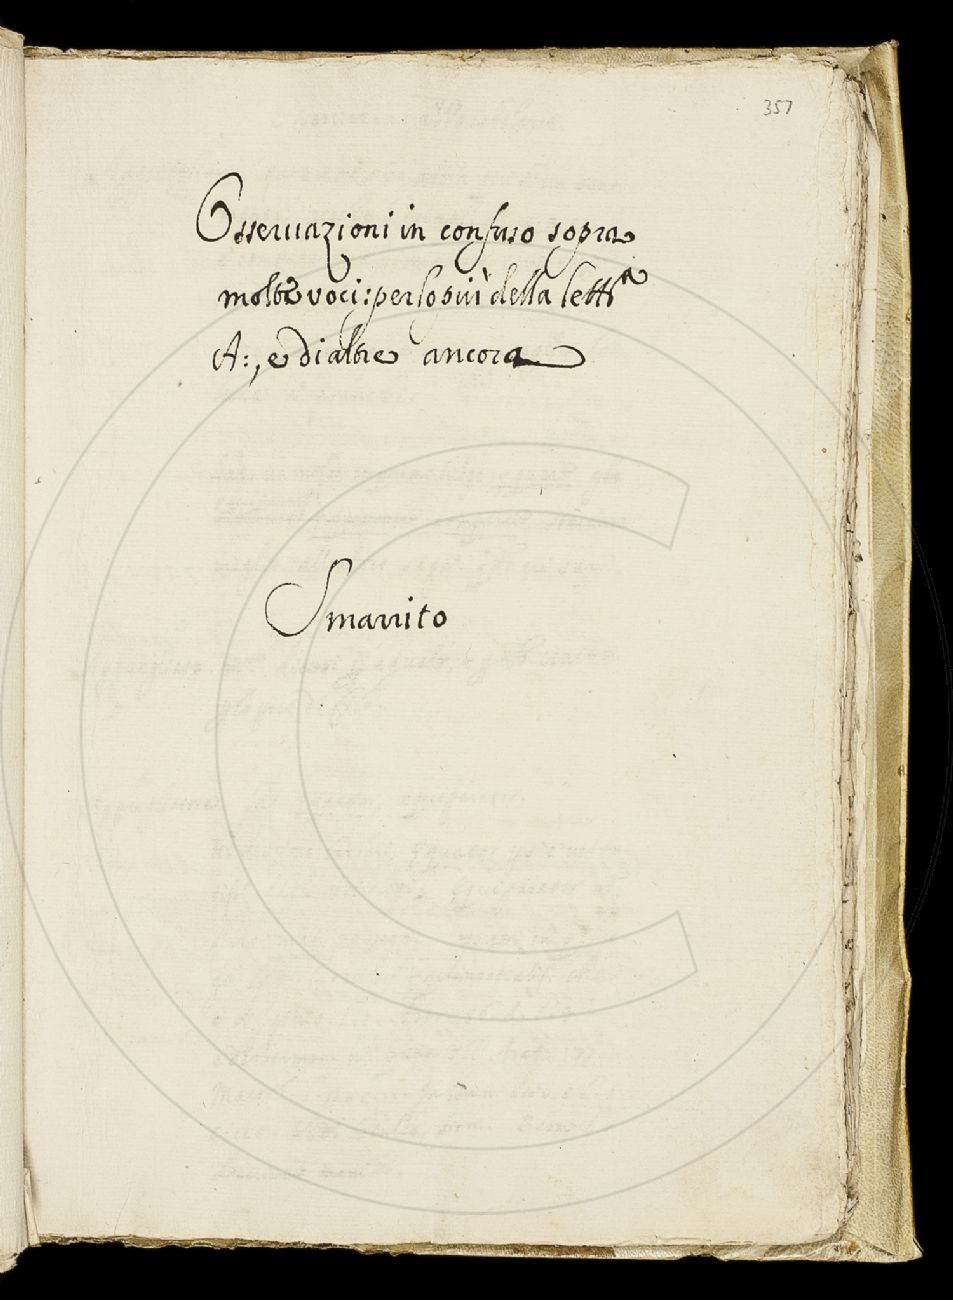 357
Osseruazioni in confuso sopra
molte voci: per lo più della lett.ª
A:, e di altre ancora
Smarrito